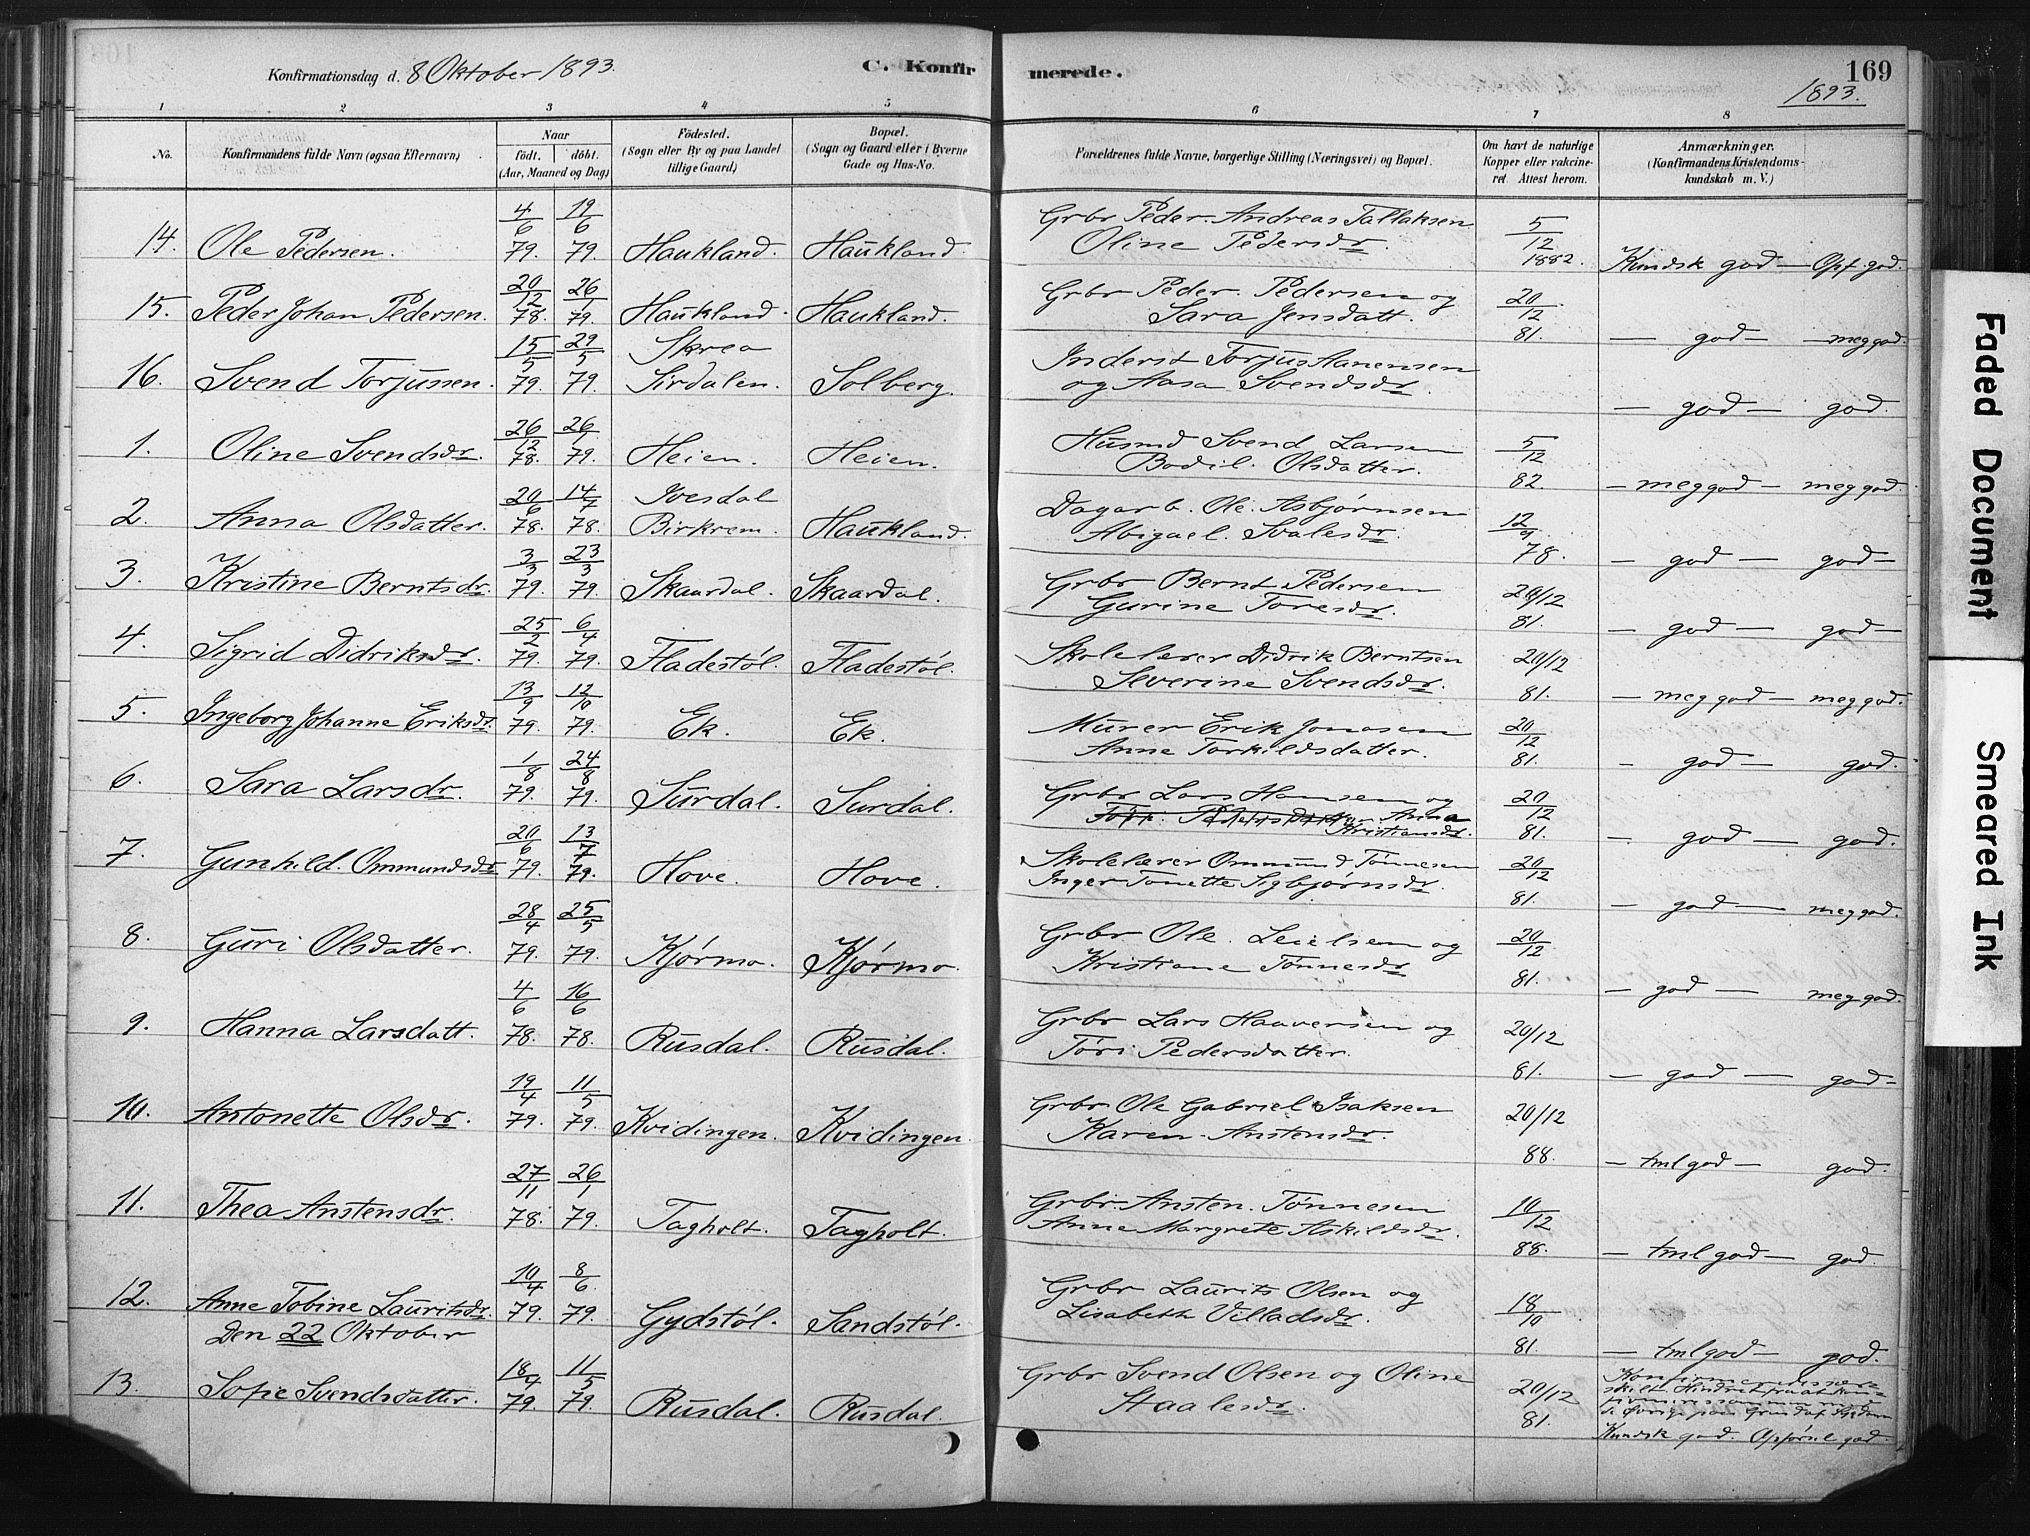 Konfirmationsdag d. 8 Oktober 1893.
C. Konfirmerede.
169
1893.
1 2 3 4 5 6 7 8
No.
Konfirmandens fulde Navn (ogsaa Efternavn)
Naar
födt. döbt.
(Aar, Maaned og Dag)
Födested.
(Sogn eller By og paa Landet
tillige Gaard)
Bopæl.
(Sogn og Gaard eller i Byerne
Gade og Hus-No.
Forældrenes fulde Navne, borgerlige Stilling (Næringsvei) og Bopæl.
Om havt de naturlige
Kopper eller vakcine-
ret. Attest herom.
Anmærkninger.
(Konfirmandens Kristendoms-
kundskab m. V.)
14. Ole Pedersen. 4/6 79. 19/6 79. Haukland. Haukland.
Grbr Peder Andreas Tallaksen
Oline Pedersdr. 5/12 1882. Kundsk god – Opf. god.
15. Peder Johan Pedersen. 20/12 78. 26/1 79. Haukland. Haukland.
Grbr Peder Pedersen og
Sara Jensdatt. 20/12 81. – god – – meg god.
16. Svend Torjussen. 15/5 79. 29/5 79. Skrea
Sirdalen. Solberg.
Inderst Torjus Hanensen
og Aasa Svendsdr. – god – god.
1. Oline Svendsdr. 26/12 78. 26/1 79. Heien. Heien.
Husmd Svend Larsen
Bodil Olsdatter. 5/12 82. – meg god – meg god.
2. Anna Olsdatter. 20/6 78. 14/7 78. Ivesdal
Birkrem. Haukland.
Dagarb. Ole Asbjørnsen
Abigael Svalesdr. 12/9 78. – god – god –
3. Kristine Berntsdr. 3/3 79. 23/3 79. Skaardal. Skaardal.
Grbr Bernt Pedersen
Gurine Toresdr. 20/12 81. – god – god –
4. Sigrid Didriksdr. 25/2 79. 6/4 79. Fladestøl. Fladestøl.
Skolelærer Didrik Berntsen
Severine Svendsdr. 20/12 81. – meg god – meg god.
5. Ingeborg Johanne Eriksdr. 13/9 79. 12/10 79. Ek. Ek.
Murer Erik Jonasen
Anne Torkildsdatter. 20/12 81. – god – god.
6. Sara Larsdr. 1/8 79. 24/8 79. Surdal. Surdal.
Grbr Lars Hansen og
Anna
Kristiansdr. 20/12 81. – god – god.
7. Gunhild Ommundsdr 20/6 79. 13/7 79. Hove. Hove.
Skolelærer Ommund Tønnesen
Inger Tonette Sigbjørnsdr. 20/12 81. – god – meg god.
8. Guri Olsdatter. 28/4 79. 25/5 79. Kjørmo. Kjørmo.
Grbr Ole Leielsen og
Kristiane Tønnesdr 20/12 81. – god – meg god.
9. Hanna Larsdatt. 4/6 78. 16/6 78. Rusdal. Rusdal.
Grbr Lars Haaversen og
Tøri Pedersdatter. 20/12 81. – god – god –
10. Antonette Olsdr. 19/4 79. 11/5 79. Kvidingen. Kvidingen.
Grbr Ole Gabriel Isaksen
Karen Anstensdr. 20/12 88. – tml god – god.
11. Thea Anstensdr. 27/11 78. 26/1 79. Tagholt. Tagholt.
Grbr. Ansten Tønnesen
Anne Margrete Askildsdr. 10/12 88. – tml god – god.
12. Anne Tobine Lauritsdr. 10/4 79. 8/6 79. Gydstøl. Sandstøl.
Grbr Laurits Olsen og
Lisabeth Villadsdr. 18/10 81. – tml god – god.
Den 22 Oktober
13. Sofie Svendsdatter. 18/4 79. 11/5 79. Rusdal. Rusdal.
Grbr Svend Olsen og Oline
Staalesdr. 20/12 81.
Kundsk god. Opførsel god.
Faded Document
Smeared Ink